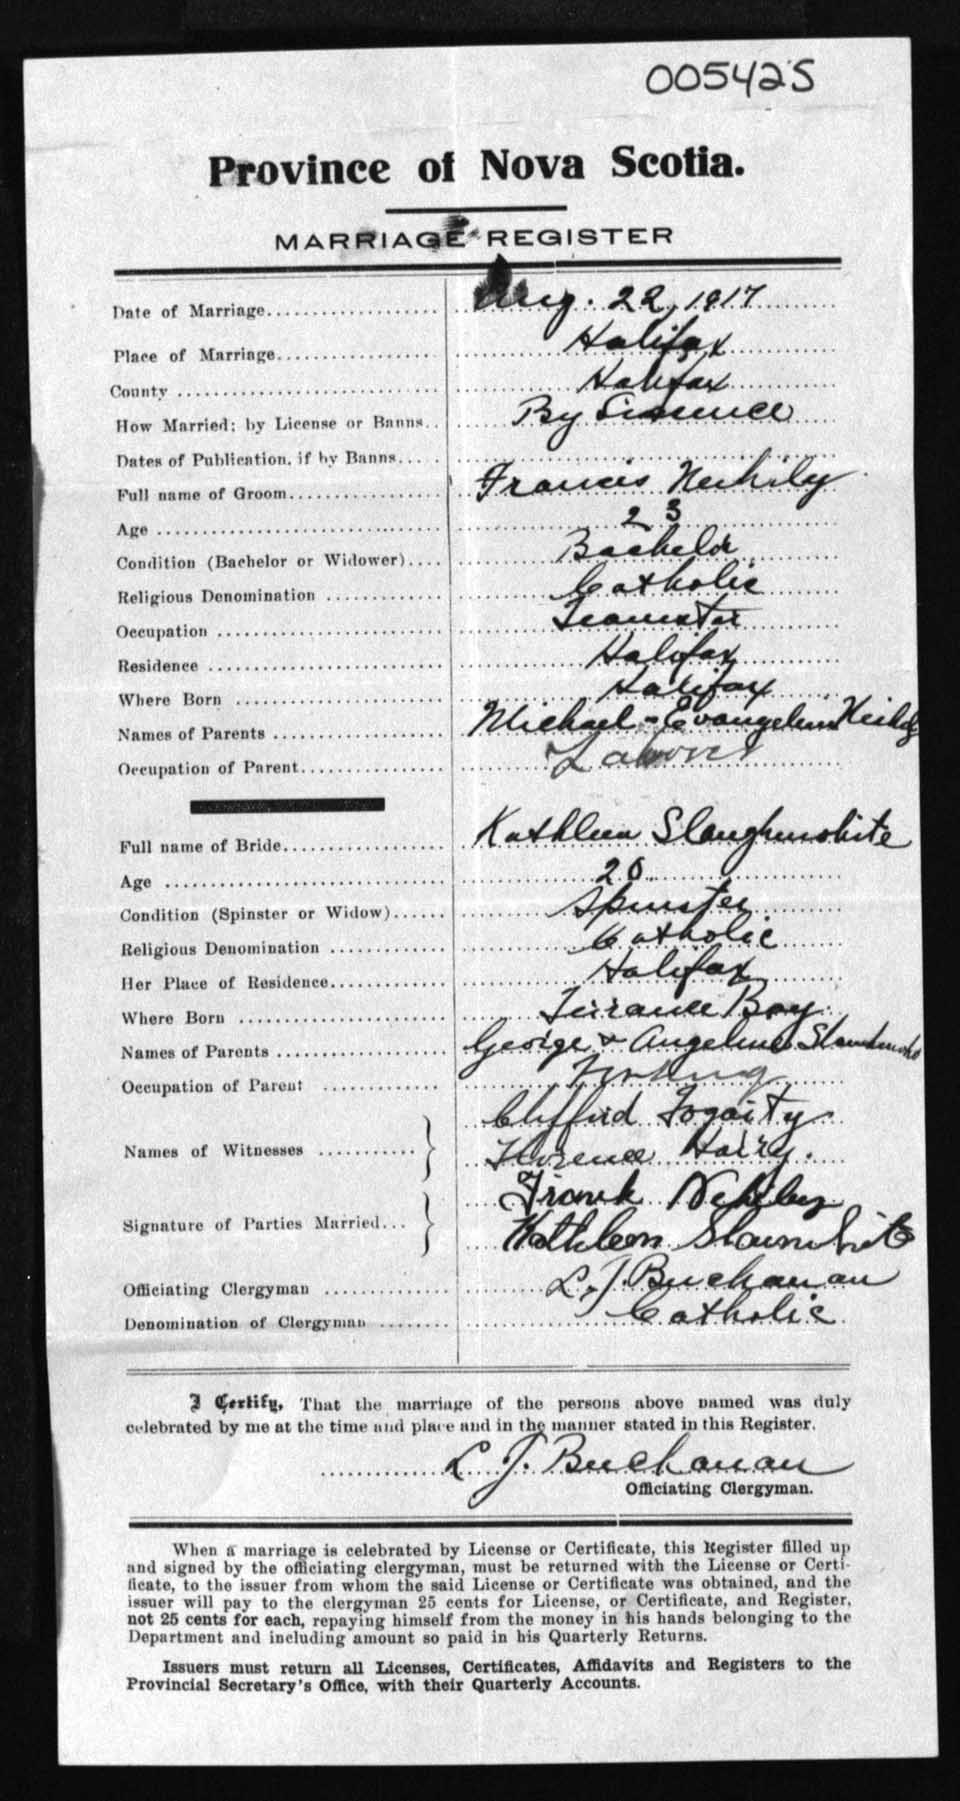 005425
Province of Nova Scotia.
MARRIAGE REGISTER
Date of Marriage Aug. 22, 1917
Place of Marriage Halifax
County Halifax
How Married; by License or Banns By Lisence
Dates of Publication, if by Banns
Full name of Groom Francis
Age 23
Condition (Bachelor or Widower) Bachelor
Religious Denomination Catholic
Occupation Teamster
Residence Halifax
Where Born Halifax
Names of Parents Michael - Evangeline
Occupation of Parent Laborer
Full name of Bride Kathleen Slaughnwhite
Age 20
Condition (Spinster or Widow) Spinster
Religious Denomination Catholic
Her Place of Residence Halifax
Where Born Terrance Bay
Names of Parents George & Angeline
Occupation of Parent
Names of Witnesses } Clifford Fogarty
Florence
Signature of Parties Married } Frank
Kathleen
Officiating Clergyman L. J. Buchanan
Denomination of Clergyman Catholic
I Certify, That the marriage of the persons above named was duly
celebrated by me at the time and place and in the manner stated in this Register.
L. J. Buchanan
Officiating Clergyman.
When a marriage is celebrated by License or Certificate, this Register filled up
and signed by the officiating clergyman, must be returned with the License or Certi-
ficate, to the issuer from whom the said License or Certificate was obtained, and the
issuer will pay to the clergyman 25 cents for License, or Certificate, and Register,
not 25 cents for each, repaying himself from the money in his hands belonging to the
Department and including amount so paid in his Quarterly Returns.
Issuers must return all Licenses, Certificates, Affidavits and Registers to the
Provincial Secretary's Office, with their Quarterly Accounts.